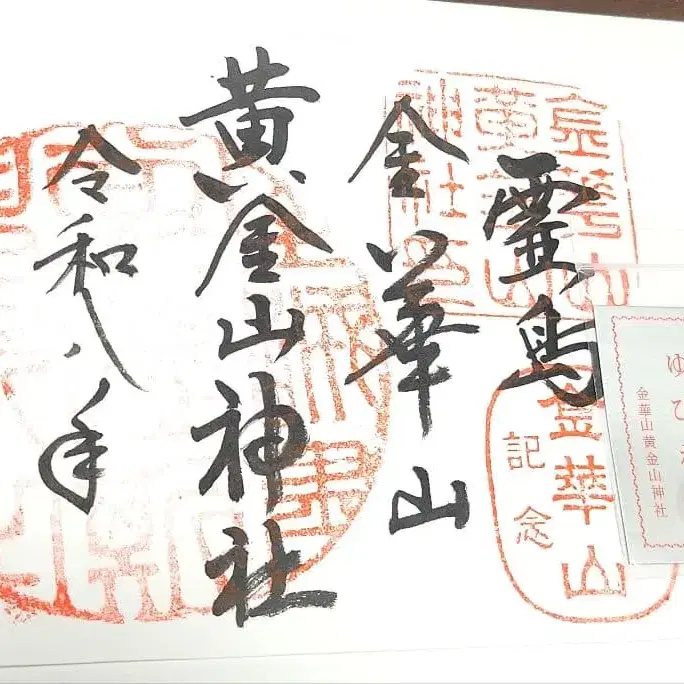 霊島
金華山
黄金山神社
令和八年
金華山
黄金山
神社印
金華山
記念
ゆび
金華山黄金山神社